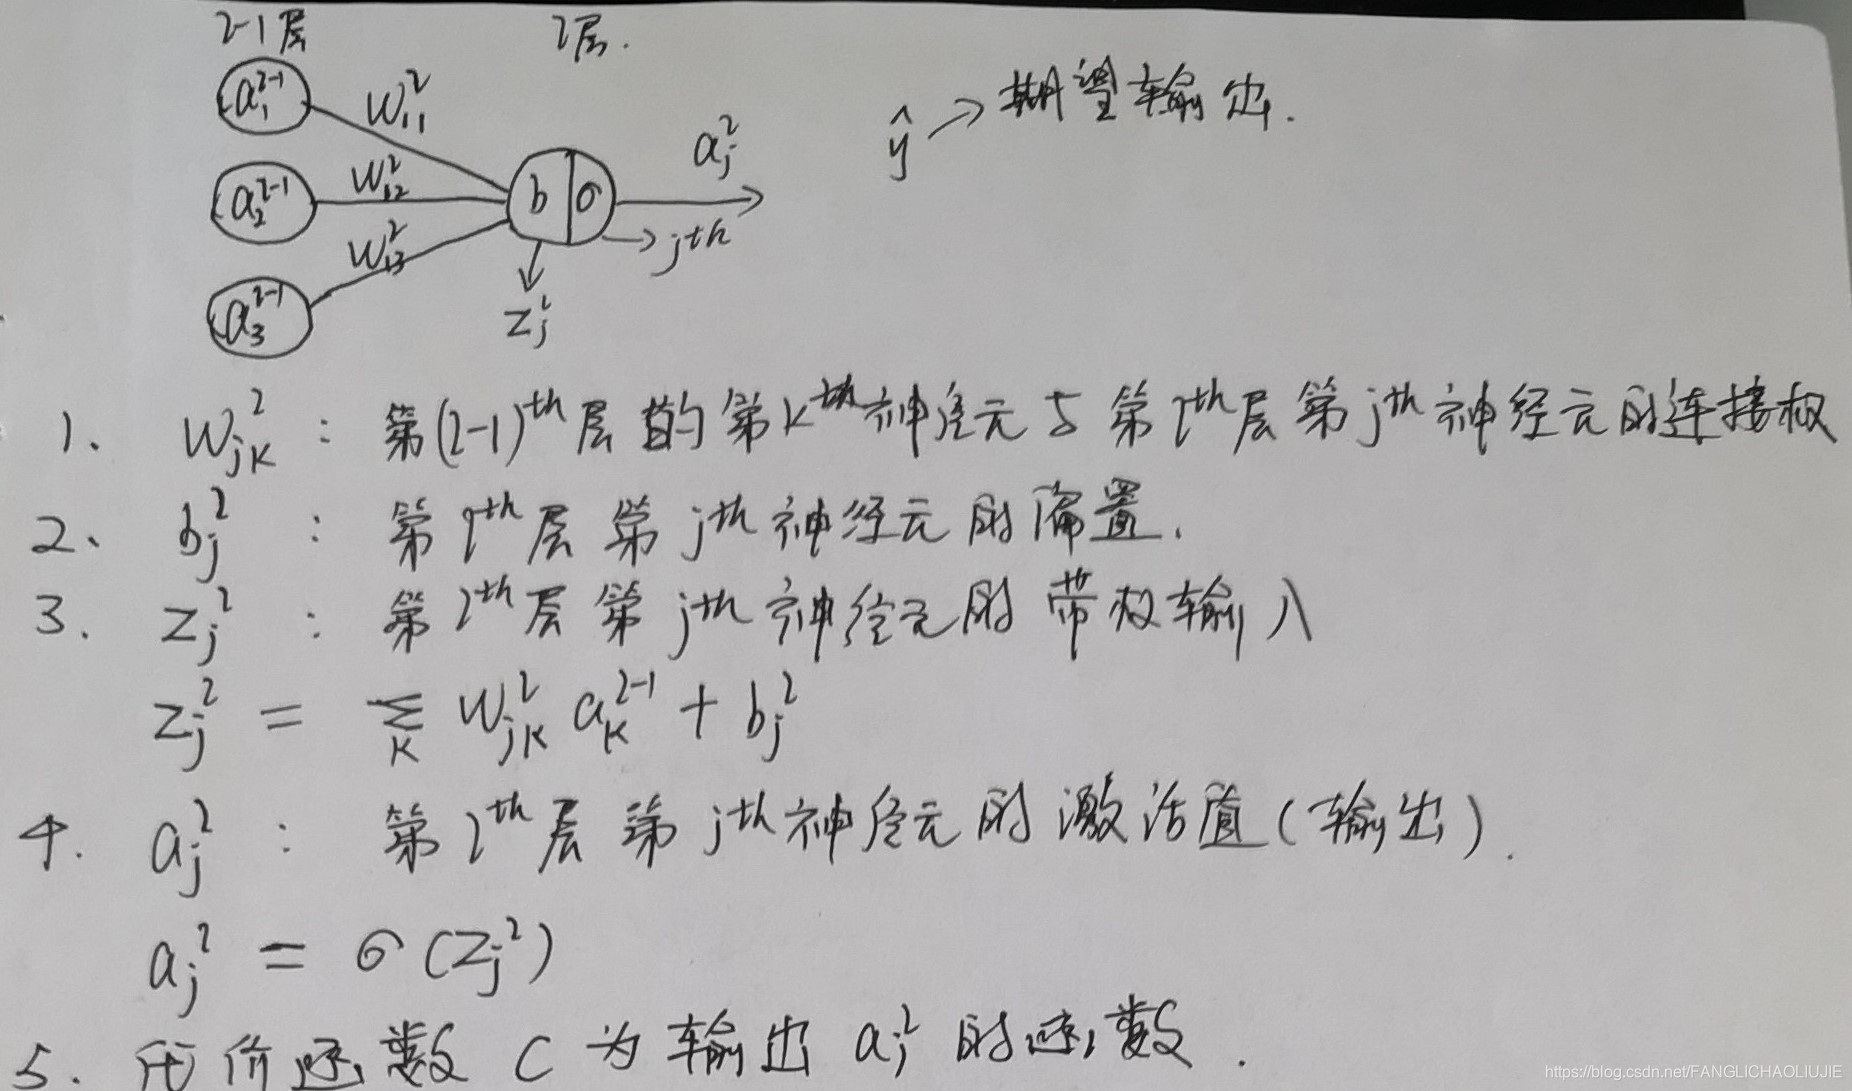 l-1层 l层.
a₁^{l-1} w₁₁^l
ŷ → 期望输出.
a₂^{l-1} w₁₂^l b σ a_j^l
a₃^{l-1} w₁₃^l → jth
z_j^l
1、 w_{jk}^l : 第(l-1)^{th}层的第k^{th}神经元与第l^{th}层第j^{th}神经元的连接权
2、 b_j^l : 第l^{th}层第j^{th}神经元的偏置.
3. z_j^l : 第l^{th}层第j^{th}神经元的带权输入
z_j^l = Σ_k w_{jk}^l a_k^{l-1} + b_j^l
4. a_j^l : 第l^{th}层第j^{th}神经元的激活值(输出).
a_j^l = σ(z_j^l)
5. 代价函数 C 为输出 a_j^l 的函数.
https://blog.csdn.net/FANGLICHAOLIUJIE